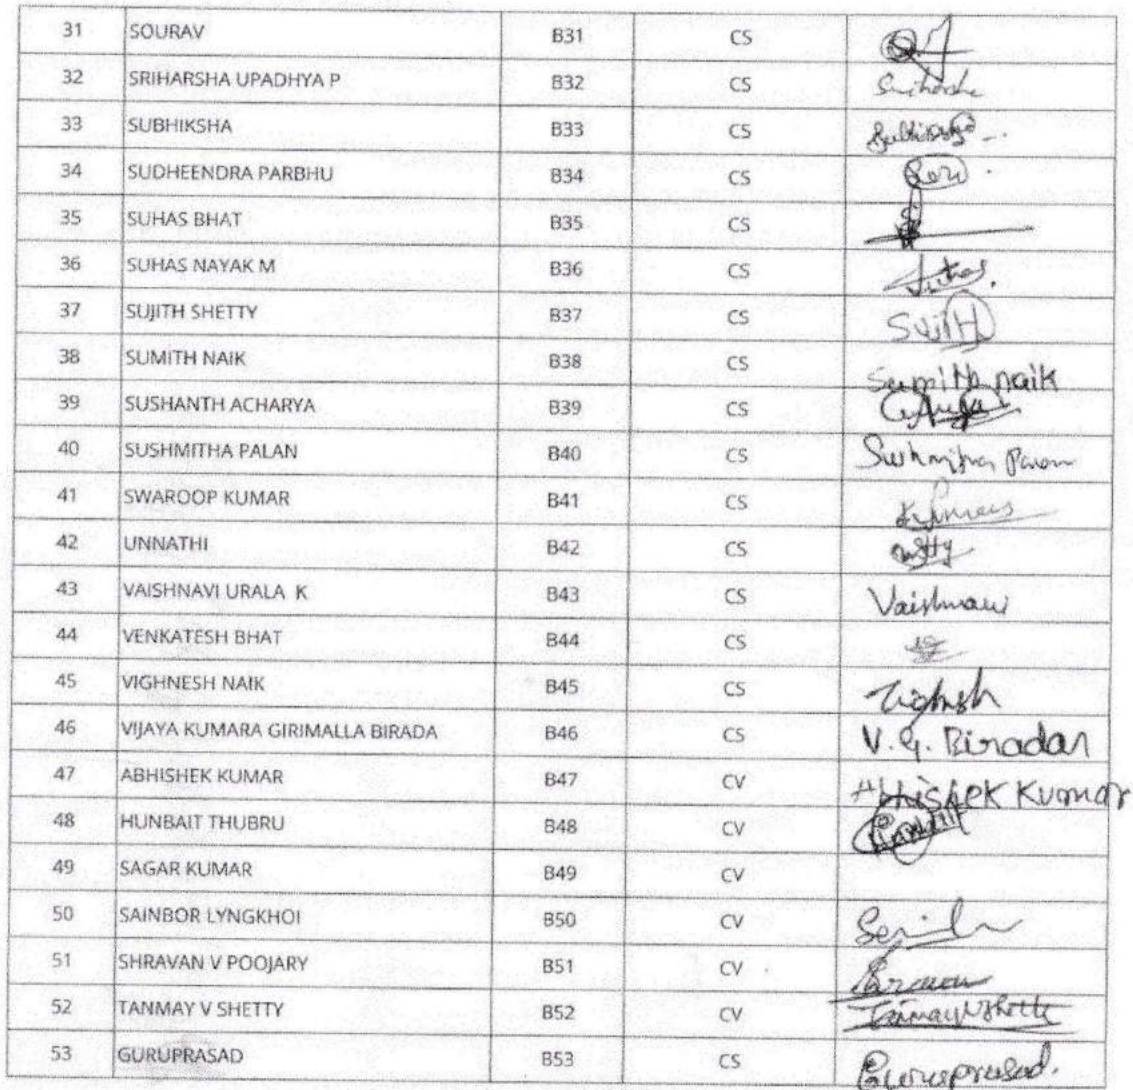 31 SOURAV B31 CS
32 SRIHARSHA UPADHYA P B32 CS
33 SUBHIKSHA B33 CS
34 SUDHEENDRA PARBHU B34 CS
35 SUHAS BHAT B35 CS
36 SUHAS NAYAK M B36 CS
37 SUJITH SHETTY B37 CS SUJITH
38 SUMITH NAIK B38 CS Sumith naik
39 SUSHANTH ACHARYA B39 CS
40 SUSHMITHA PALAN B40 CS
41 SWAROOP KUMAR B41 CS
42 UNNATHI B42 CS
43 VAISHNAVI URALA K B43 CS Vaishnavi
44 VENKATESH BHAT B44 CS
45 VIGHNESH NAIK B45 CS
46 VIJAYA KUMARA GIRIMALLA BIRADA B46 CS V. G. Biradar
47 ABHISHEK KUMAR B47 CV Abhishek Kumar
48 HUNBAIT THUBRU B48 CV
49 SAGAR KUMAR B49 CV
50 SAINBOR LYNGKHOI B50 CV
51 SHRAVAN V POOJARY B51 CV
52 TANMAY V SHETTY B52 CV Tanmay V Shetty
53 GURUPRASAD B53 CS Guruprasad.